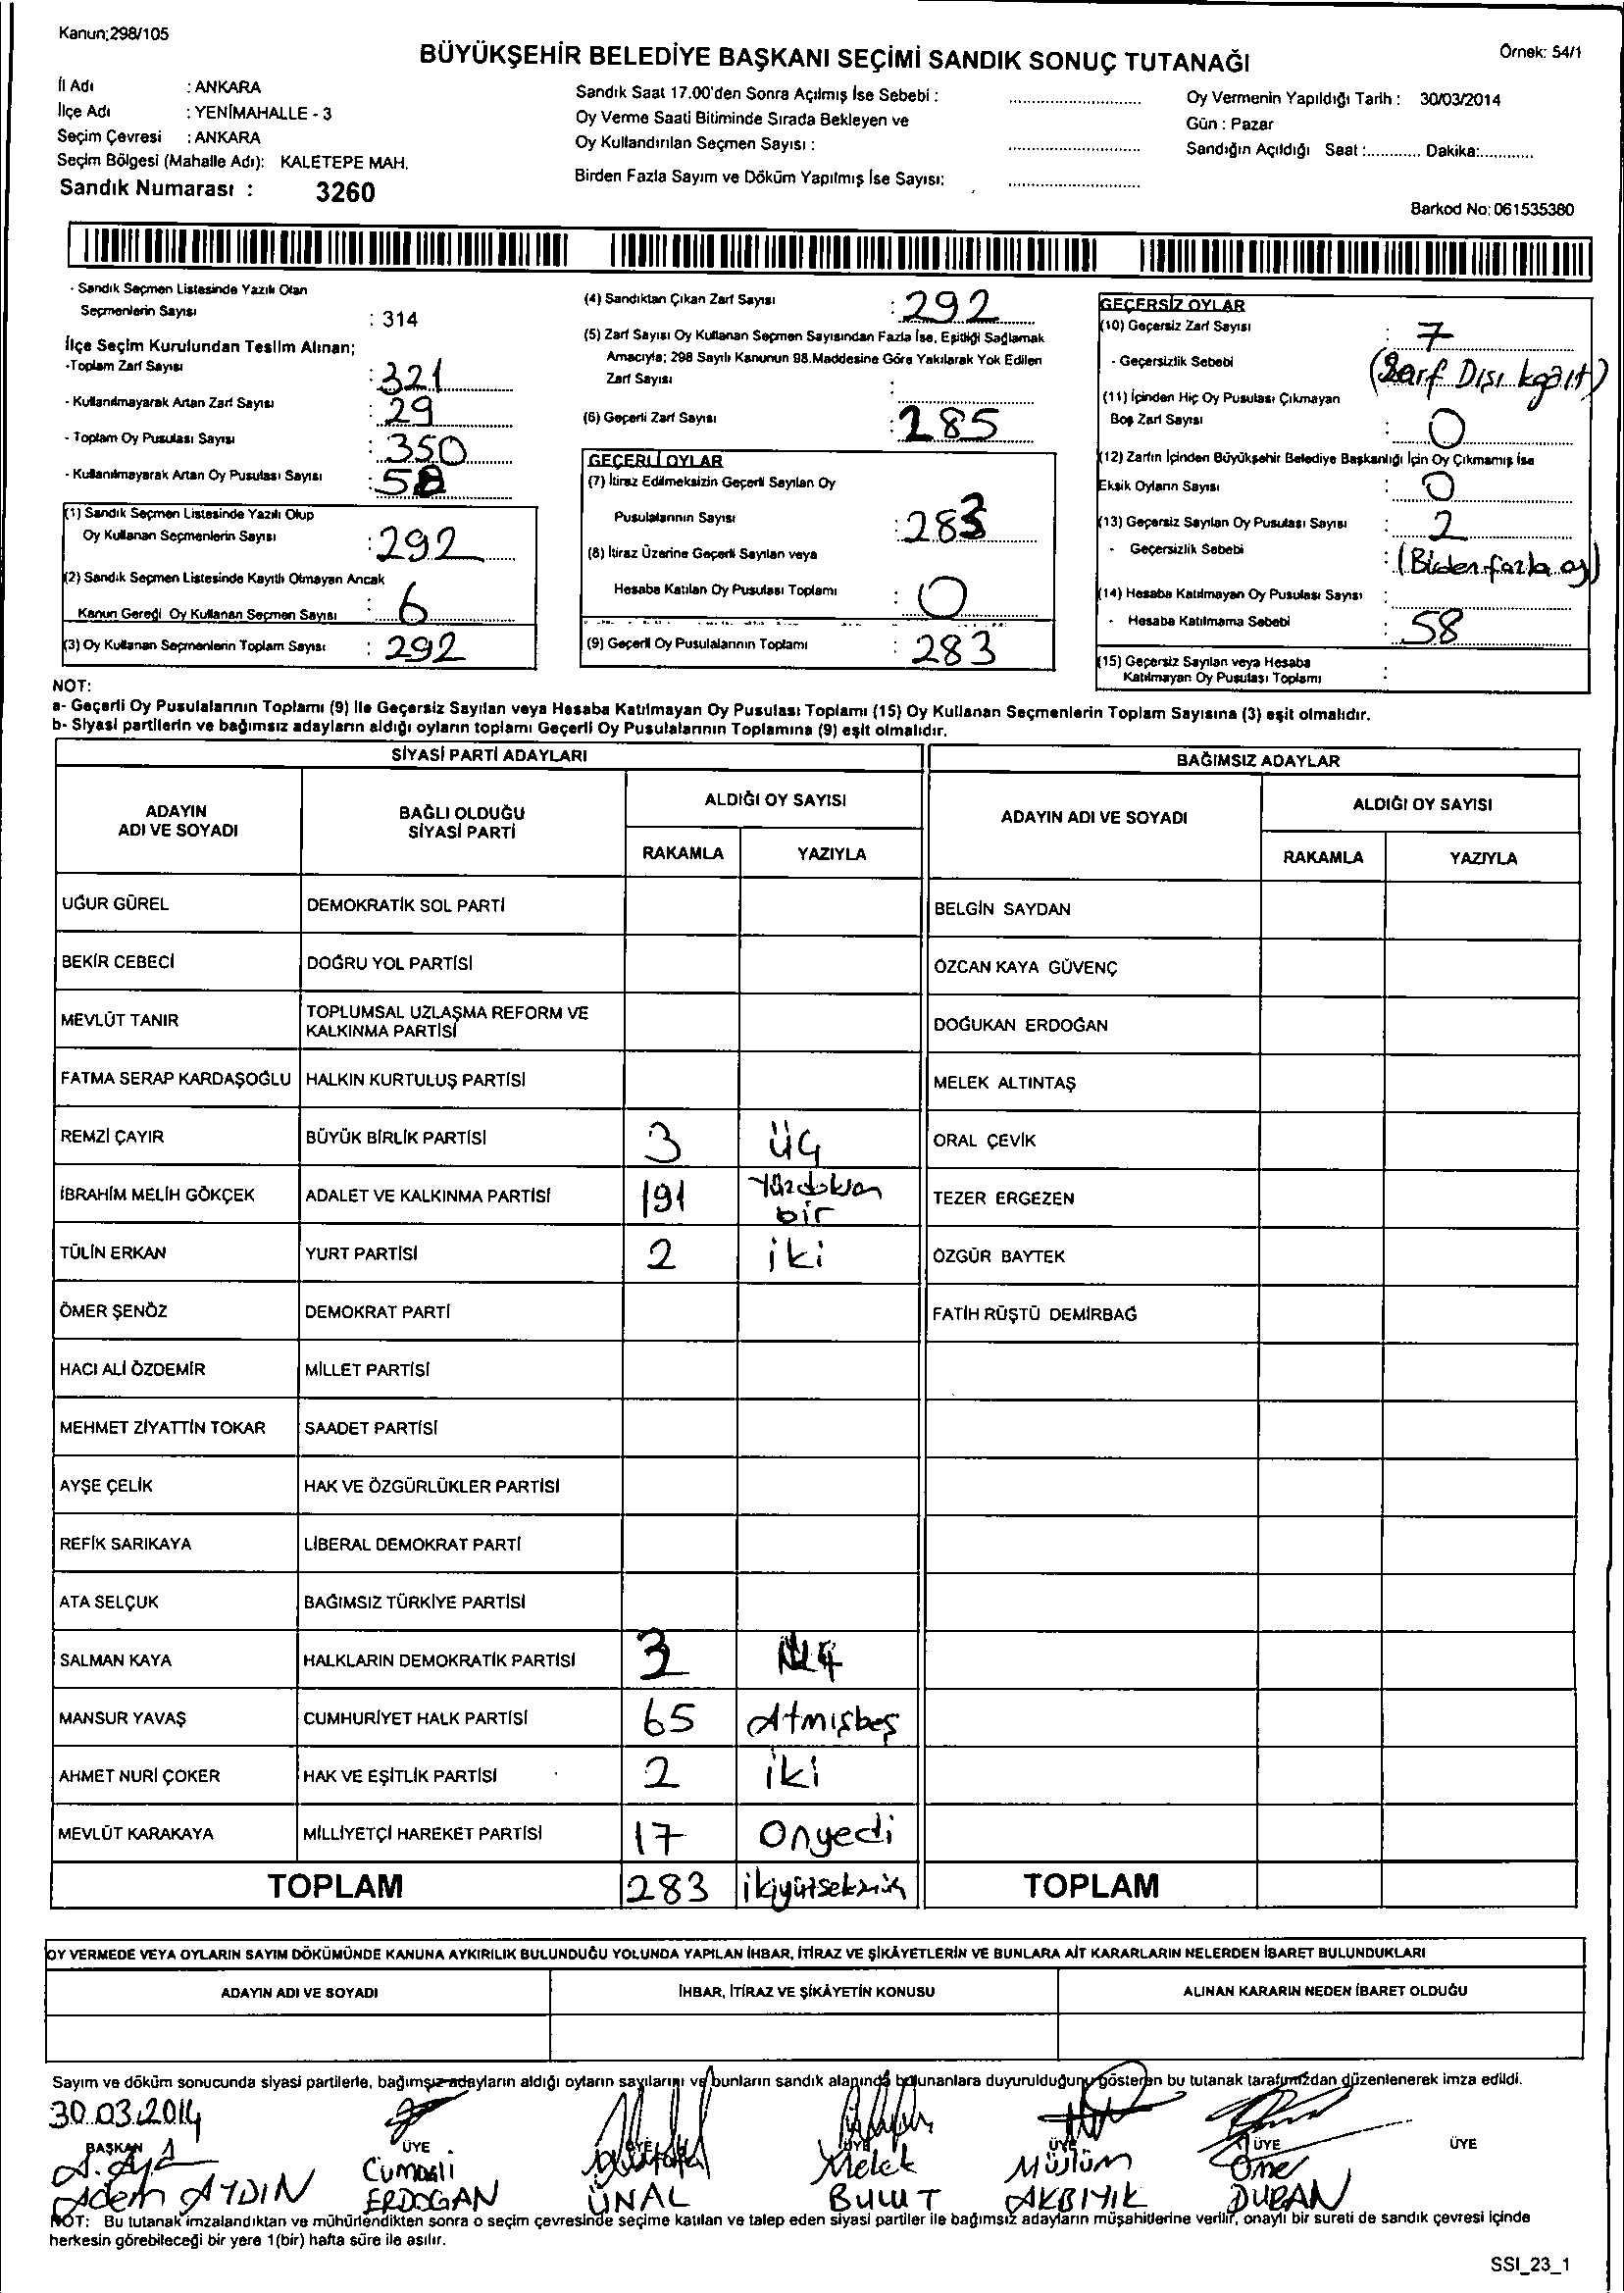 Kanun;298/105
BÜYÜKŞEHİR BELEDİYE BAŞKANI SEÇİMİ SANDIK SONUÇ TUTANAĞI
Örnek: 54/1
İl Adı : ANKARA
İlçe Adı : YENİMAHALLE - 3
Seçim Çevresi : ANKARA
Seçim Bölgesi (Mahalle Adı): KALETEPE MAH.
Sandık Numarası : 3260
Sandık Saat 17.00'den Sonra Açılmış İse Sebebi :
Oy Verme Saati Bitiminde Sırada Bekleyen ve
Oy Kullandırılan Seçmen Sayısı :
Birden Fazla Sayım ve Döküm Yapılmış İse Sayısı:
Oy Vermenin Yapıldığı Tarih : 30/03/2014
Gün : Pazar
Sandığın Açıldığı Saat :............ Dakika:............
Barkod No: 061535380
- Sandık Seçmen Listesinde Yazılı Olan
Seçmenlerin Sayısı : 314
İlçe Seçim Kurulundan Teslim Alınan;
-Toplam Zarf Sayısı : 321
- Kullanılmayarak Artan Zarf Sayısı : 29
- Toplam Oy Pusulası Sayısı : 350
- Kullanılmayarak Artan Oy Pusulası Sayısı : 58
(1) Sandık Seçmen Listesinde Yazılı Olup
Oy Kullanan Seçmenlerin Sayısı : 292
(2) Sandık Seçmen Listesinde Kayıtlı Olmayan Ancak
Kanun Gereği Oy Kullanan Seçmen Sayısı : 6
(3) Oy Kullanan Seçmenlerin Toplam Sayısı : 292
(4) Sandıktan Çıkan Zarf Sayısı : 292
(5) Zarf Sayısı Oy Kullanan Seçmen Sayısından Fazla İse, Eşitliği Sağlamak
Amacıyla; 298 Sayılı Kanunun 98.Maddesine Göre Yakılarak Yok Edilen
Zarf Sayısı :
(6) Geçerli Zarf Sayısı : 285
GEÇERLİ OYLAR
(7) İtiraz Edilmeksizin Geçerli Sayılan Oy
Pusulalarının Sayısı : 283
(8) İtiraz Üzerine Geçerli Sayılan veya
Hesaba Katılan Oy Pusulası Toplamı : 0
(9) Geçerli Oy Pusulalarının Toplamı : 283
GEÇERSİZ OYLAR
(10) Geçersiz Zarf Sayısı : 7
- Geçersizlik Sebebi (Zarf Dışı kgaıt)
(11) İçinden Hiç Oy Pusulası Çıkmayan
Boş Zarf Sayısı : 0
(12) Zarfın İçinden Büyükşehir Belediye Başkanlığı İçin Oy Çıkmamış İse
Eksik Oyların Sayısı : 0
(13) Geçersiz Sayılan Oy Pusulası Sayısı : 2
- Geçersizlik Sebebi : (Birden fazla oy)
(14) Hesaba Katılmayan Oy Pusulası Sayısı :
- Hesaba Katılmama Sebebi : 58
(15) Geçersiz Sayılan veya Hesaba
Katılmayan Oy Pusulası Toplamı :
NOT:
a- Geçerli Oy Pusulalarının Toplamı (9) ile Geçersiz Sayılan veya Hesaba Katılmayan Oy Pusulası Toplamı (15) Oy Kullanan Seçmenlerin Toplam Sayısına (3) eşit olmalıdır.
b- Siyasi partilerin ve bağımsız adayların aldığı oyların toplamı Geçerli Oy Pusulalarının Toplamına (9) eşit olmalıdır.
SİYASİ PARTİ ADAYLARI BAĞIMSIZ ADAYLAR
ADAYIN ADI VE SOYADI BAĞLI OLDUĞU SİYASİ PARTİ ALDIĞI OY SAYISI ADAYIN ADI VE SOYADI ALDIĞI OY SAYISI
RAKAMLA YAZIYLA RAKAMLA YAZIYLA
UĞUR GÜREL DEMOKRATİK SOL PARTİ BELGİN SAYDAN
BEKİR CEBECİ DOĞRU YOL PARTİSİ ÖZCAN KAYA GÜVENÇ
MEVLÜT TANIR TOPLUMSAL UZLAŞMA REFORM VE KALKINMA PARTİSİ DOĞUKAN ERDOĞAN
FATMA SERAP KARDAŞOĞLU HALKIN KURTULUŞ PARTİSİ MELEK ALTINTAŞ
REMZİ ÇAYIR BÜYÜK BİRLİK PARTİSİ 3 üç ORAL ÇEVİK
İBRAHİM MELİH GÖKÇEK ADALET VE KALKINMA PARTİSİ 191 Yüzdoksan bir TEZER ERGEZEN
TÜLİN ERKAN YURT PARTİSİ 2 iki ÖZGÜR BAYTEK
ÖMER ŞENÖZ DEMOKRAT PARTİ FATİH RÜŞTÜ DEMİRBAĞ
HACI ALİ ÖZDEMİR MİLLET PARTİSİ
MEHMET ZİYATTİN TOKAR SAADET PARTİSİ
AYŞE ÇELİK HAK VE ÖZGÜRLÜKLER PARTİSİ
REFİK SARIKAYA LİBERAL DEMOKRAT PARTİ
ATA SELÇUK BAĞIMSIZ TÜRKİYE PARTİSİ
SALMAN KAYA HALKLARIN DEMOKRATİK PARTİSİ 3
MANSUR YAVAŞ CUMHURİYET HALK PARTİSİ 65 Atmışbeş
AHMET NURİ ÇOKER HAK VE EŞİTLİK PARTİSİ 2 iki
MEVLÜT KARAKAYA MİLLİYETÇİ HAREKET PARTİSİ 17 Onyedi
TOPLAM 283 TOPLAM
OY VERMEDE VEYA OYLARIN SAYIM DÖKÜMÜNDE KANUNA AYKIRILIK BULUNDUĞU YOLUNDA YAPILAN İHBAR, İTİRAZ VE ŞİKÂYETLERİN VE BUNLARA AİT KARARLARIN NELERDEN İBARET BULUNDUKLARI
ADAYIN ADI VE SOYADI İHBAR, İTİRAZ VE ŞİKÂYETİN KONUSU ALINAN KARARIN NEDEN İBARET OLDUĞU
Sayım ve döküm sonucunda siyasi partilerle, bağımsız adayların aldığı oyların sayılarını ve bunların sandık alanında bulunanlara duyurulduğunu gösteren bu tutanak tarafımızdan düzenlenerek imza edildi.
30.03.2014
BAŞKAN ÜYE ÜYE ÜYE ÜYE ÜYE ÜYE
Cumali Melek Müslüm Ömer
Adem AYDIN ERDOGAN ÜNAL BULUT AKBIYIK DURAN
NOT: Bu tutanak imzalandıktan ve mühürlendikten sonra o seçim çevresinde seçime katılan ve talep eden siyasi partiler ile bağımsız adayların müşahitlerine verilir, onaylı bir sureti de sandık çevresi içinde
herkesin görebileceği bir yere 1(bir) hafta süre ile asılır.
SSI_23_1